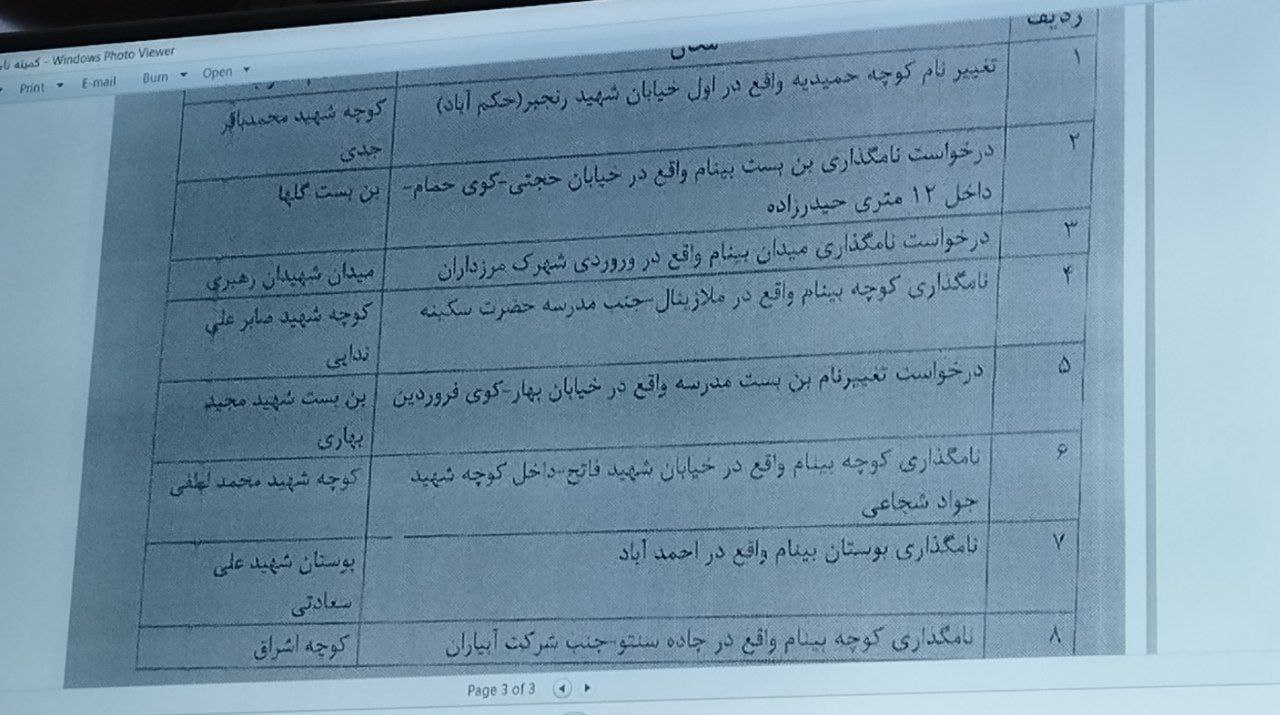 Windows Photo Viewer - کمیته
Print E-mail Burn Open
ردیف
۱
تغییر نام کوچه حمیدیه واقع در اول خیابان شهید رنجبر(حکم آباد)
کوچه شهید محمدباقر
جدی
۲
درخواست نامگذاری بن بست بینام واقع در خیابان حجتی-کوی حمام-
داخل ۱۲ متری حیدرزاده
بن بست گلها
۳
درخواست نامگذاری میدان بینام واقع در وروردی شهرک مرزداران
میدان شهیدان رهبری
۴
نامگذاری کوچه بینام واقع در ملازینال-جنب مدرسه حضرت سکینه
کوچه شهید صابر علی
ندایی
۵
درخواست تغییرنام بن بست مدرسه واقع در خیابان بهار-کوی فروردین
بن بست شهید مجید
بهاری
۶
نامگذاری کوچه بینام واقع در خیابان شهید فاتح-داخل کوچه شهید
جواد شجاعی
کوچه شهید محمد لطفی
۷
نامگذاری بوستان بینام واقع در احمد آباد
بوستان شهید علی
سعادتی
۸
نامگذاری کوچه بینام واقع در جاده سنتو-جنب شرکت آبیاران
کوچه اشراق
Page 3 of 3